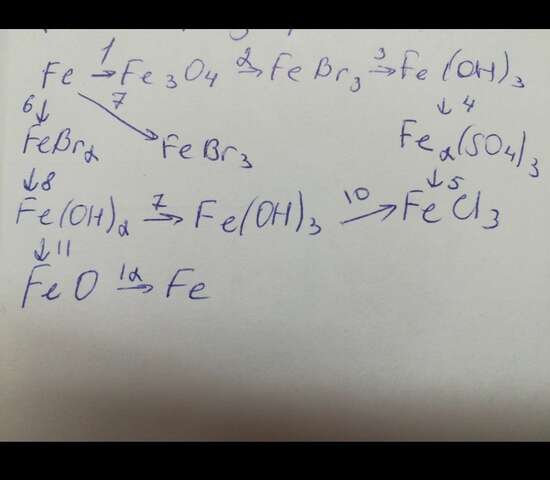 Fe →1 Fe3O4 →2 FeBr3 →3 Fe(OH)3
6↓ 7↘ ↓4
FeBr2 FeBr3 Fe2(SO4)3
↓8 ↓5
Fe(OH)2 →7 Fe(OH)3 →10 FeCl3
↓11
FeO →12 Fe